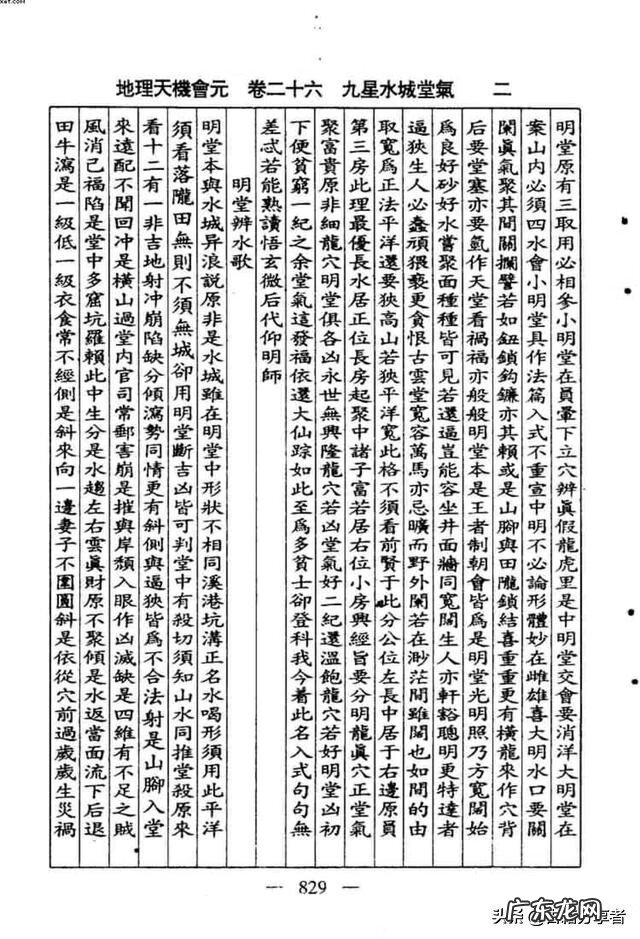 xet.com
地理天機會元　卷二十六　九星水城堂氣　二
明堂原有三取用必相參小明堂在員暈下立穴辨真假龍虎里是中明堂交會要消洋大明堂在
案山內必須四水會小明堂具作法篇入式不重宣中明不必論形體妙在雌雄喜大明水口要關
闌真氣聚其間關攔譬若如鈕鎖鈎鐮亦其賴或是山腳與田隴鎖結喜重重更有橫龍來作穴背
后要堂塞亦要氣作天堂看禍福亦般般明堂本是王者制朝會皆為是明堂光明照乃方寬闊始
為良好砂好水嘗聚面種種皆可見若還逼豈能容坐井面牆同寬闊生人亦軒豁聰明更特達者
逼狹生人必蠢頑猥褻更貪恨古雲堂寬容萬馬亦忌曠而野外闌若在渺茫間雖闊也如閒的由
取寬為正法平洋還要狹高山若狹平洋寬此格不須看前賢于此分公位左長中居于右邊原員
第三房此理最優長水居正位長房起聚中諸子富若居右位小房興經旨要分明龍真穴正堂氣
聚富貴原非細龍穴明堂俱各凶永世無興隆龍穴若凶堂氣好二紀還溫飽龍穴若好明堂凶初
下便貧窮一紀之余堂氣這發福依還大仙踪如此至為多貧士卻登科我今着此名入式句句無
差忒若能熟讀悟玄微后代仰明師
明堂辨水歌
明堂本與水城异浪說原非是水城雖在明堂中形狀不相同溪港坑溝正名水喝形須用此平洋
須看落隴田無則不須無城卻用明堂斷吉凶皆可判堂中有殺切須知山水同推堂殺原來
看十二有一非吉地射冲崩陷缺分傾瀉勢同情更有斜側與逼狹皆為不合法射是山腳入堂
來遠配不聞回冲是橫山過堂內官司常郵害崩是摧與岸頹入眼作凶滅缺是四維有不足之賊
風消己福陷是堂中多窟坑羅賴此中生分是水趨左右雲真財原不聚傾是水返當面流下后退
田牛瀉是一級低一級衣食常不經側是斜來向一邊妻子不圍圓斜是依從穴前過歲歲生災禍
— 829 —
广东龙网
头条
享者